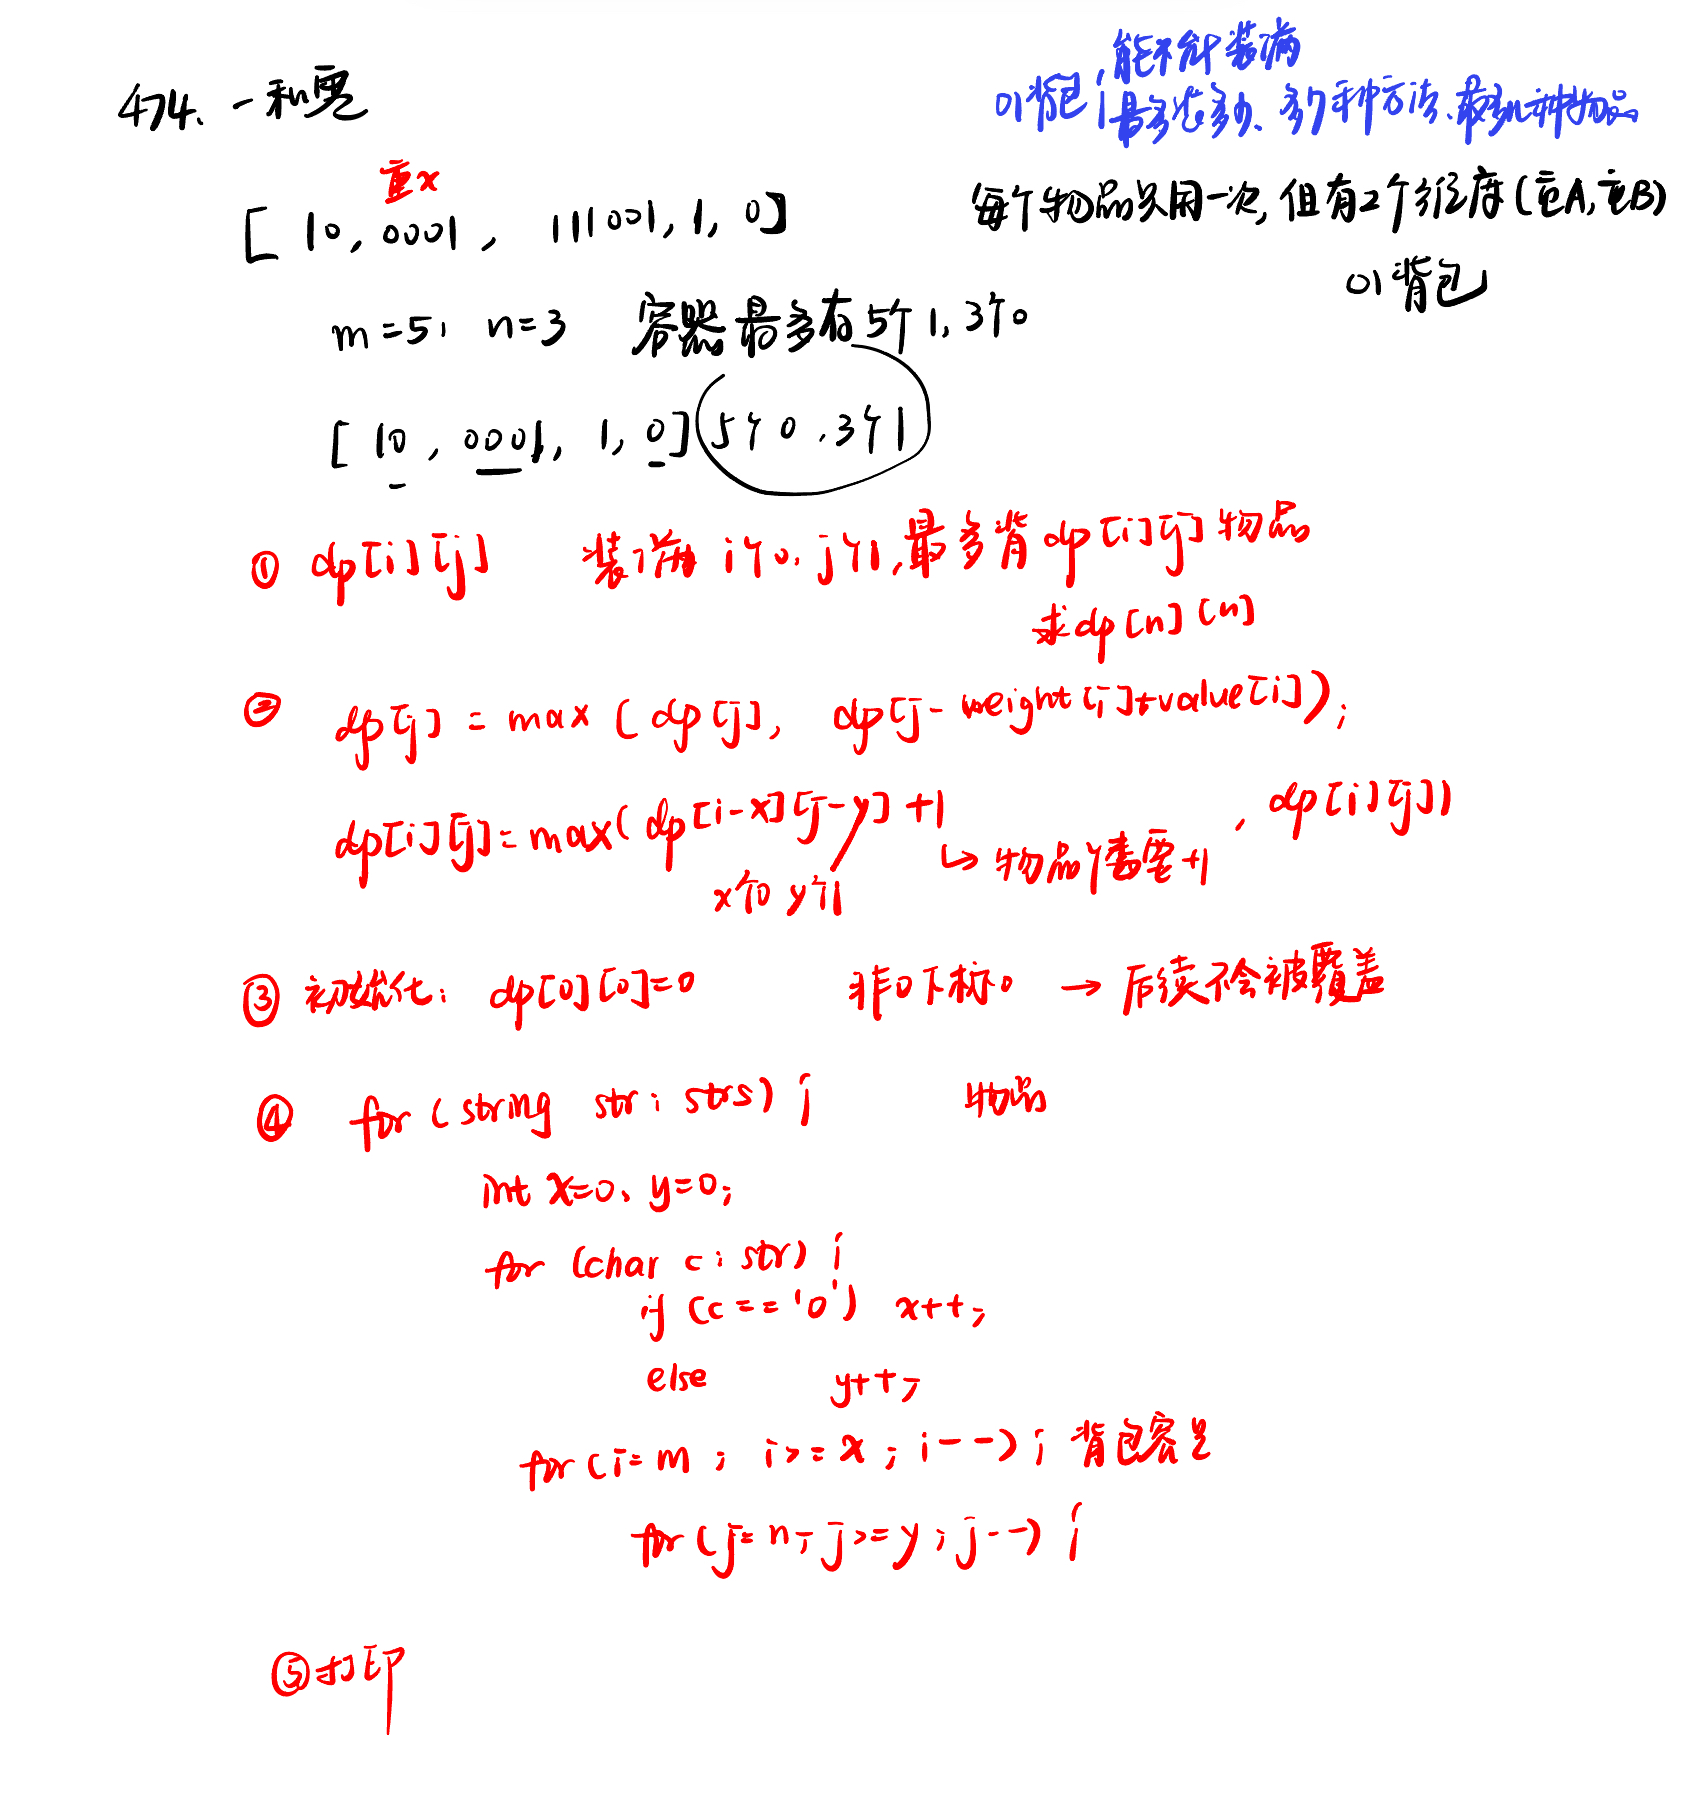 474. 一和零
01背包 { 能不能装满
最多装多少、多少种方法、最多几种物品
重x
[ 10, 0001, 111001, 1, 0]
每个物品只用一次, 但有2个维度(重A, 重B)
01背包
m=5, n=3 容器最多有5个1, 3个0
[ 10, 0001, 1, 0] 5个0, 3个1
① dp[i][j] 装满 i个0, j个1, 最多背 dp[i][j] 物品
求dp[n][n]
② dp[j] = max (dp[j], dp[j-weight[i]+value[i]);
dp[i][j]= max( dp[i-x][j-y] +1 , dp[i][j])
x个0 y个1 ↳ 物品个数要+1
③ 初始化: dp[0][0]=0 非0下标0 → 后续不会被覆盖
④ for (string str: strs) { 物品
int x=0, y=0;
for (char c: str) {
if (c=='0') x++;
else y++;
for (i=m; i>=x; i--) { 背包容量
for (j=n; j>=y; j--) {
⑤打印